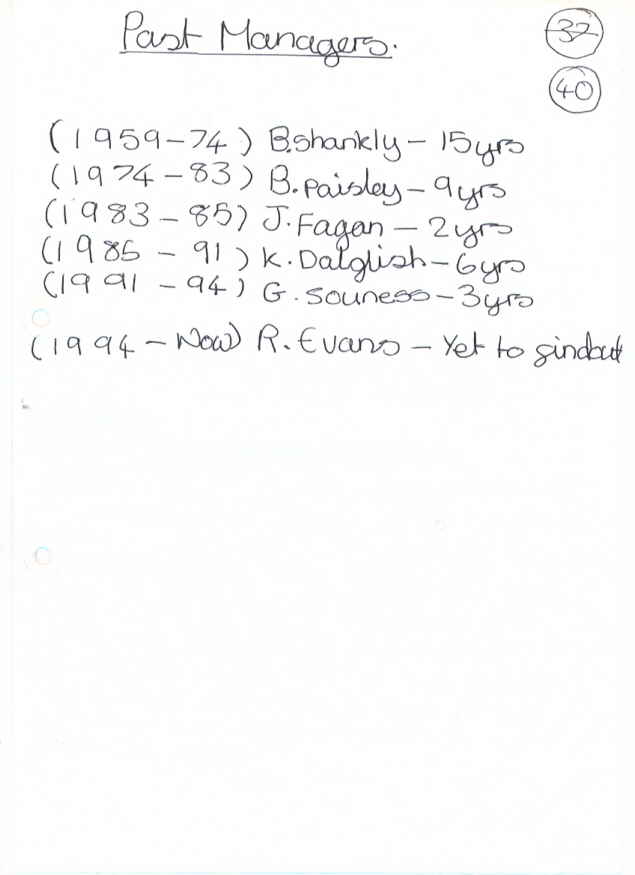 Past Managers.
37
40
(1959-74) B.Shankly - 15yrs
(1974-83) B.Paisley - 9yrs
(1983-85) J.Fagan - 2yrs
(1985 - 91) K.Dalglish - 6yrs
(1991 - 94) G.Souness - 3yrs
(1994 - Now) R.Evans - Yet to findout